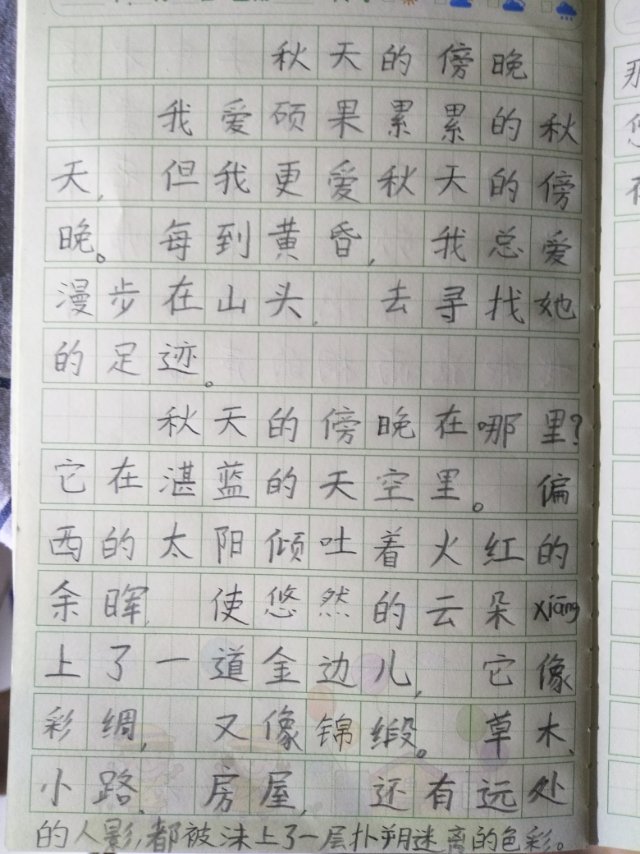 秋天的傍晚
我爱硕果累累的秋
天,但我更爱秋天的傍
晚。每到黄昏,我总爱
漫步在山头,去寻找她
的足迹。
秋天的傍晚在哪里?
它在湛蓝的天空里。偏
西的太阳倾吐着火红的
余晖,使悠然的云朵xiāng
上了一道金边儿,它像
彩绸,又像锦缎。草木、
小路、房屋,还有远处
的人影,都被沫上了一层扑朔迷离的色彩。